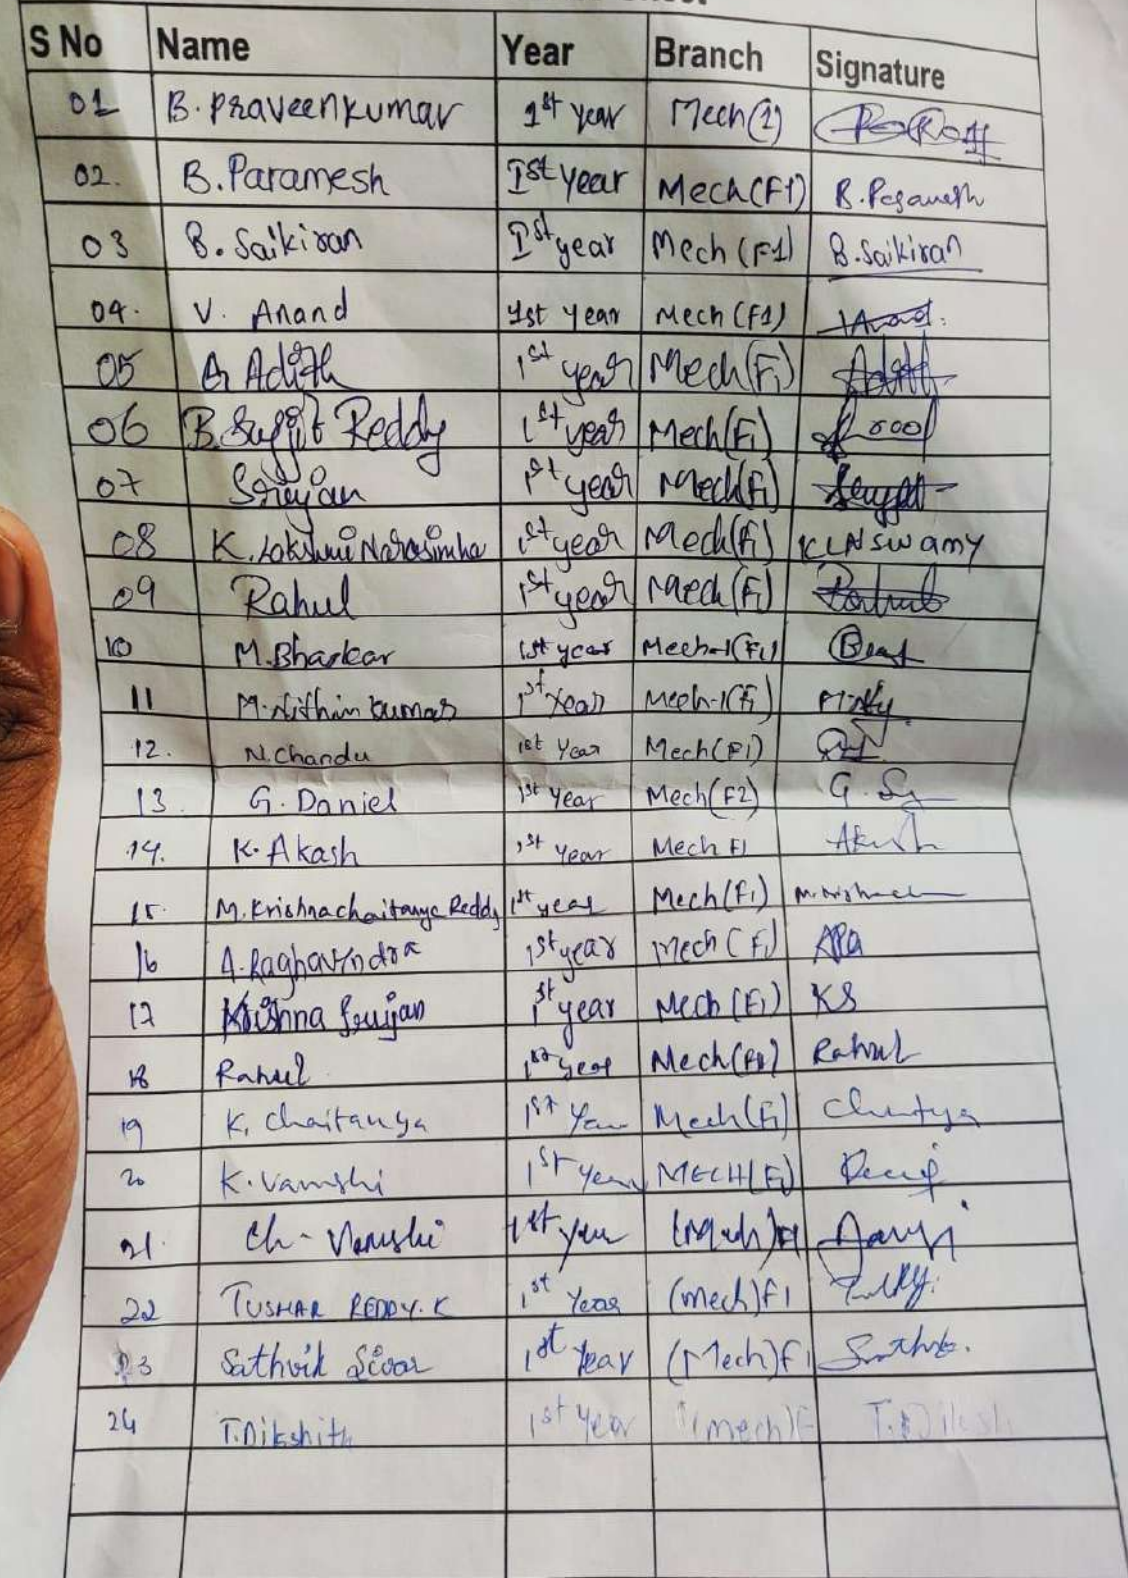 S No Name Year Branch Signature
01 B. Praveenkumar 1st year Mech(1)
02. B. Paramesh Ist year Mech(F1)
03 B. Saikiran Ist year Mech (F1) B. Saikiran
04. V. Anand 1st year Mech (F1)
05 Adith 1st year Mech(F1)
06 Reddy 1st year Mech(F1)
07 Srujan 1st year Mech(F1)
08 K. Lakshmi Narasimha 1st year Mech(F1) KLNSWAMY
09 Rahul 1st year Mech(F1)
10 M. Bhaskar 1st year Mech-1(F1)
11 M. Nithin kumar 1st Year Mech-1(F1)
12. N. Chandu 1st Year Mech(F1)
13. G. Daniel 1st Year Mech(F2)
14. K. Akash 1st Year Mech F1 Akash
15. M. Krishnachaitanya Reddy 1st year Mech(F1)
16 A. Raghavendra 1st year Mech (F1)
17 Krishna Srujan 1st year Mech (F1) KS
18 Rahul 1st year Rahul
19 K. Chaitanya 1st Year Mech(F1)
20 K. Vamshi 1st Year MECH(F1)
21. Ch - Vamshi 1st year (Mech)F1
22 TUSHAR REDDY. K 1st Year (mech)F1
23 Sathvik 1st Year (Mech)F1
24 T. Dikshith 1st Year (mech)F